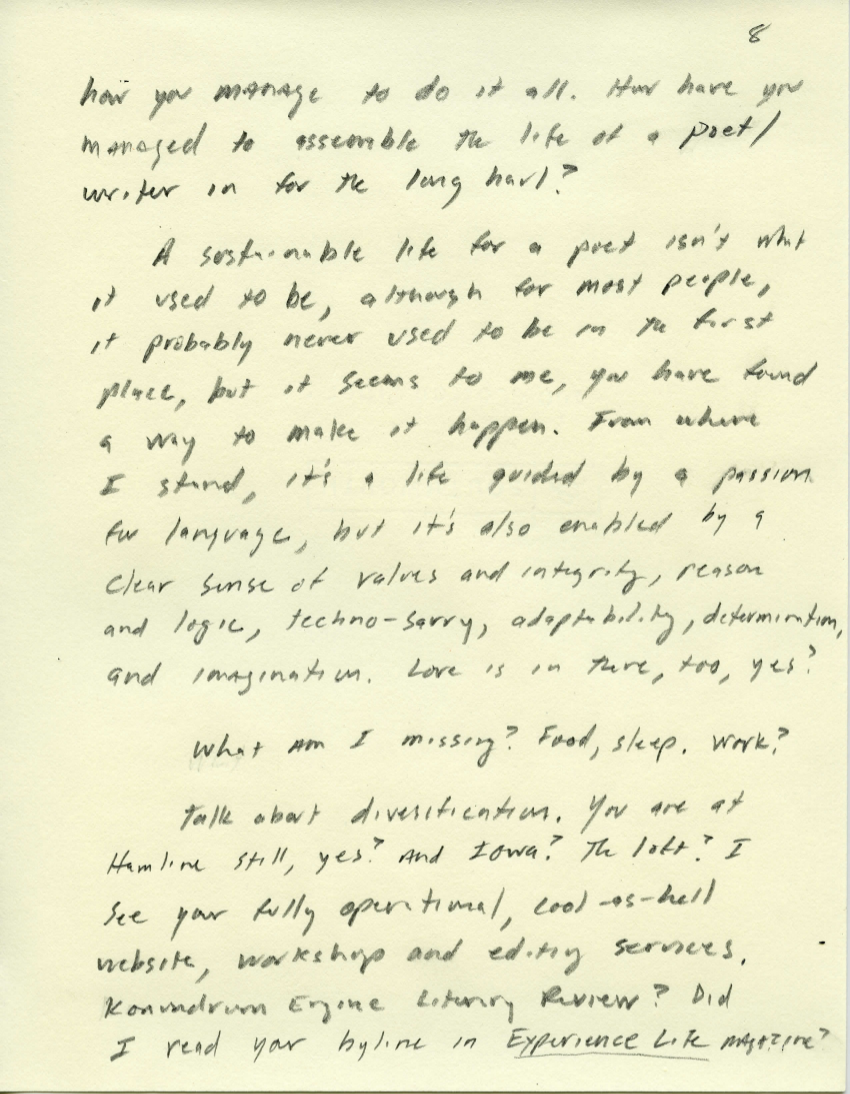 8
how you manage to do it all. How have you
managed to assemble the life of a poet/
writer in for the long haul?
A sustainable life for a poet isn't what
it used to be, although for most people,
it probably never used to be in the first
place, but it seems to me, you have found
a way to make it happen. From where
I stand, it's a life guided by a passion
for language, but it's also enabled by a
clear sense of values and integrity, reason
and logic, techno-savvy, adaptability, determination,
and imagination. Love is in there, too, yes?
What am I missing? Food, sleep. Work?
Talk about diversification. You are at
Hamline still, yes? And Iowa? The loft? I
see your fully operational, cool-as-hell
website, workshop and editing services.
Konundrum Engine Literary Review? Did
I read your byline in Experience Life magazine?